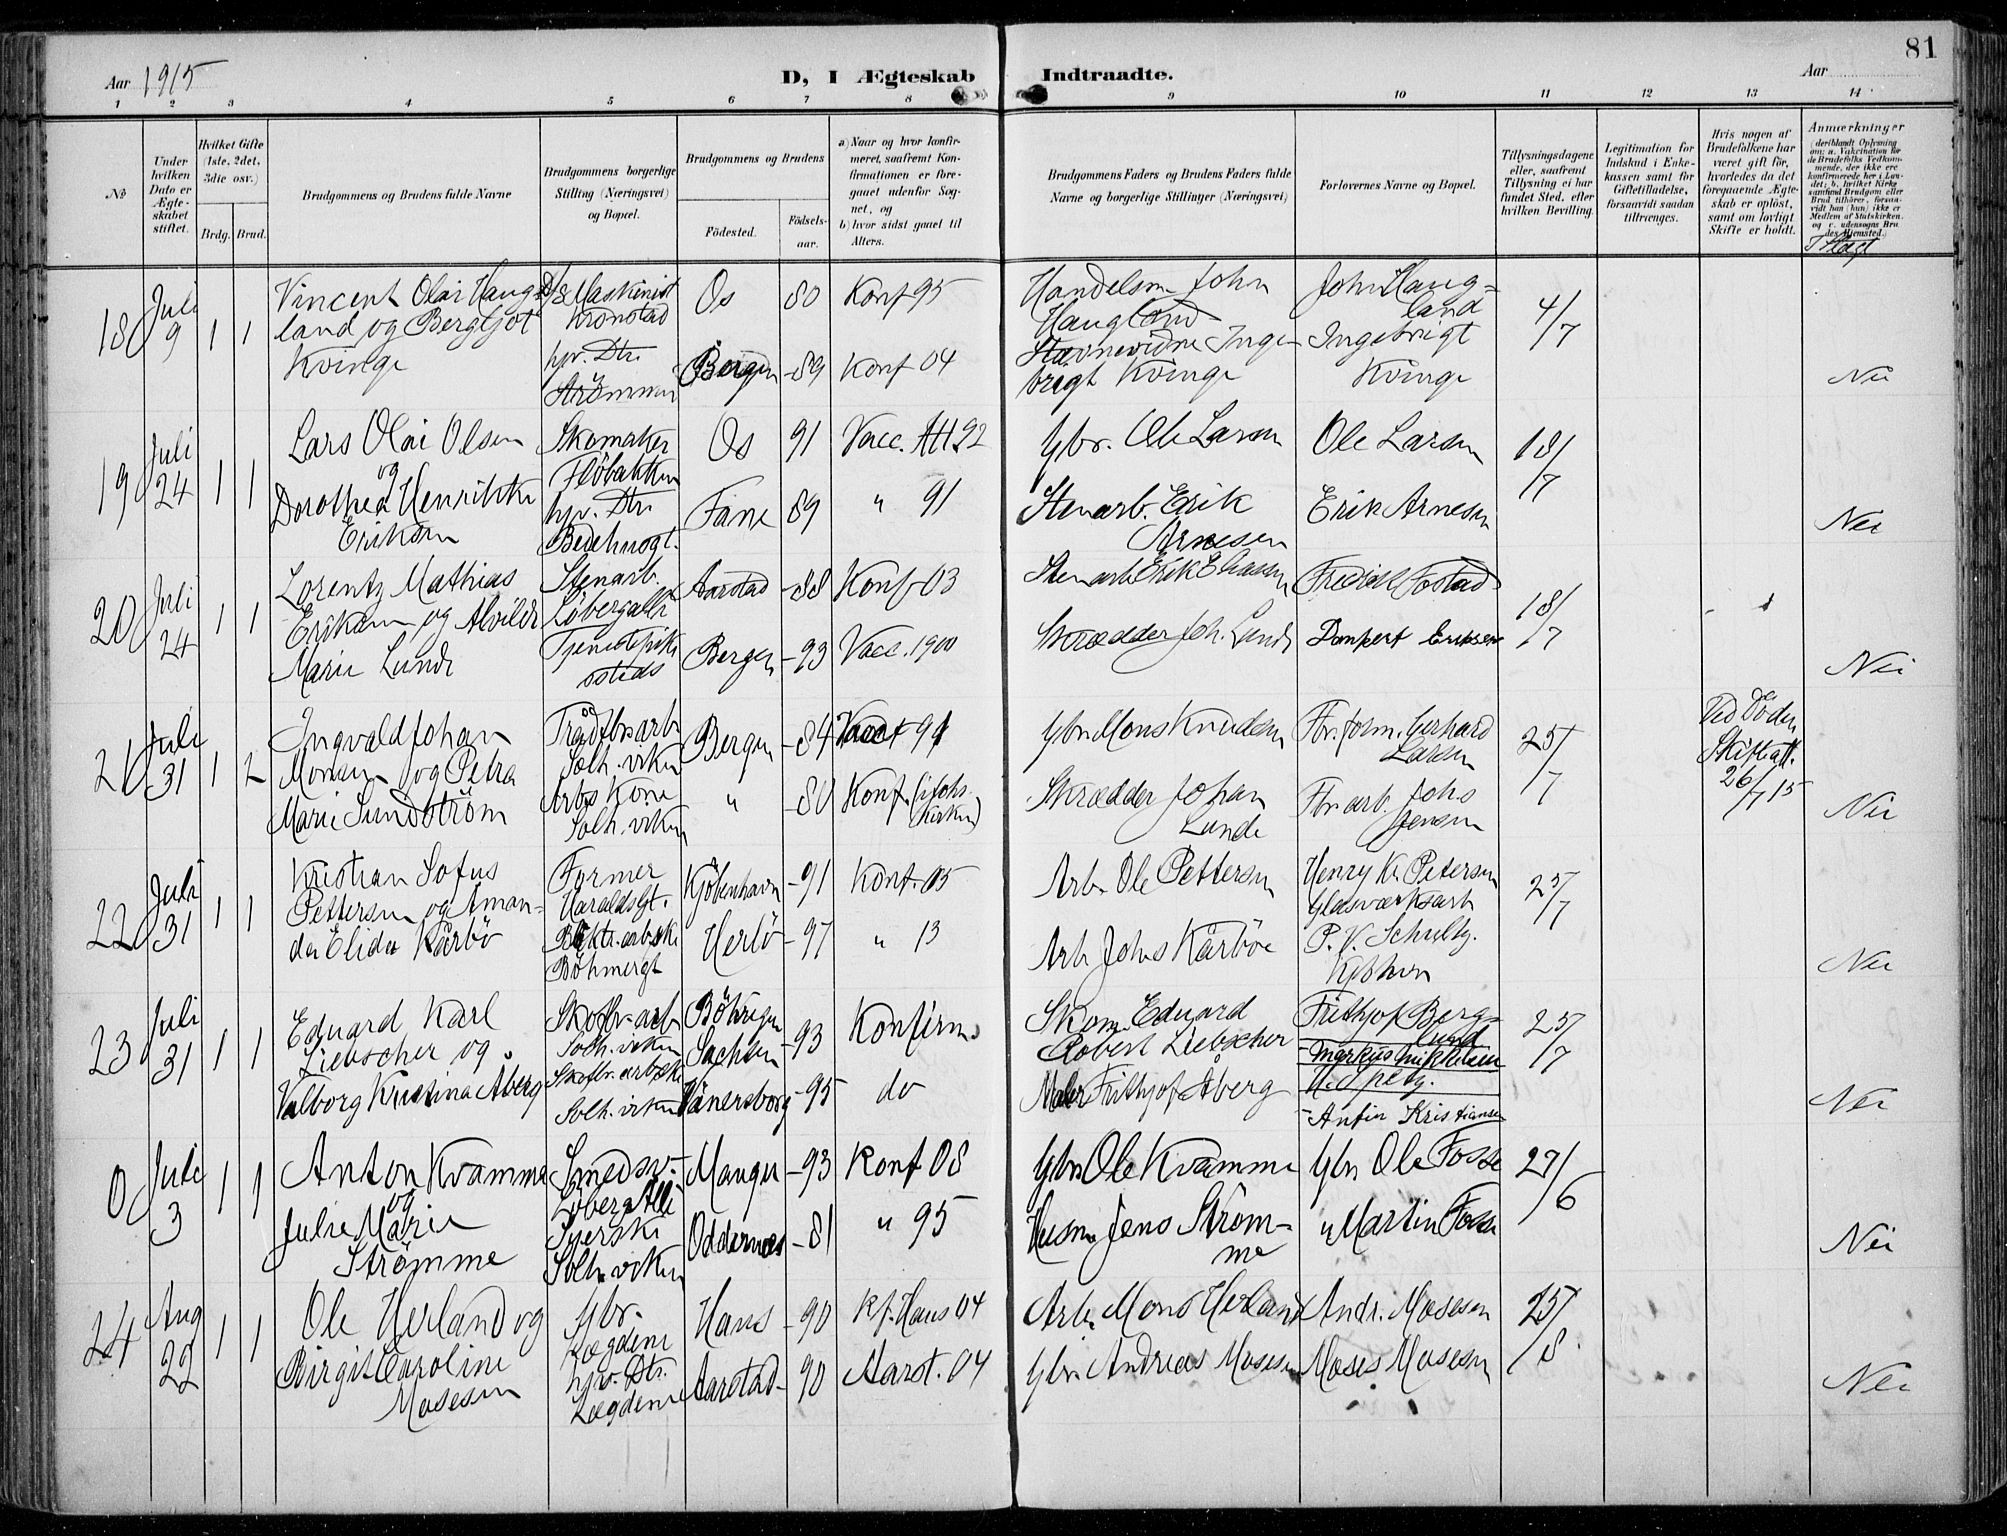 81
Aar 1915
D, I Ægteskab Indtraadte.
Aar
1 2 3 4 5 6 7 8 9 10 11 12 13 14
No
Under hvilken Dato er Ægteskabet stiftet.
Hvilket Gifte (1ste, 2det, 3die osv.)
Brdg. Brud.
Brudgommens og Brudens fulde Navne
Brudgommens borgerlige Stilling (Næringsvei) og Bopæl.
Brudgommens og Brudens
Födested. Födselsaar.
a) Naar og hvor konfirmeret, saafremt Konfirmationen er foregaaet udenfor Sognet, og
b) hvor sidst gaaet til Alters.
Brudgommens Faders og Brudens Faders fulde Navne og borgerlige Stillinger (Næringsvei)
Forlovernes Navne og Bopæl.
Tillysningsdagene eller, saafremt Tillysning ei har fundet Sted, efter hvilken Bevilling.
Legitimation for Indskud i Enkekassen samt for Giftetilladelse, forsaavidt saadan tiltrænges.
Hvis nogen af Brudefolkene har været gift för, hvorledes da det foregaaende Ægteskab er oplöst, samt om lovligt Skifte er holdt.
Anmærkninger (deriblandt Oplysning om: a. Vakcination for de Brudefolks Vedkommende, der ikke ere konfirmerede her i Landet; b. hvilket Kirkesamfund Brudgom eller Brud tilhörer, forsaavidt han (hun) ikke er Medlem af Statskirken, og c. udensogns Brudes Hjemsted.)
18 Juli 9 1 1
Vincent Olai Haugland og Bergljot Kvinge
Maskinist Kronstad
hjv. Dtr. Strömmen
Os 80 Konf 95
Bergen -89 Konf 04
Handelsm John Haugland
Stævnevidne Ingebrigt Kvinge
John Haugland
Ingebrigt Kvinge
4/7
Nei
19 Juli 24 1 1
Lars Olai Olsen og Dorothea Henrikke Eriksen
Skomaker Flöbakken
hjv. Dtr.
Os 91 Vacc. Att 92
Fane 89 " 91
Gbr. Ole Larsen
Stenarb. Erik Arnesen
Ole Larsen
Erik Arnesen
18/7
Nei
20 Juli 24 1 1
Lorentz Mathias Eriksen og Alvilde Marie Lunde
Stenarb. Löbergalle
Tjenestepike sstds
Aarstad -88 Konf 03
Bergen -93 Vacc. 1900
Stenarb Erik Eliassen
Skrædder Joh. Lunde
Fredrik Fostad
Eriksen
18/7
Nei
21 Juli 31 1 2
Ingvald Johan Monsen og Petra Marie Sundström
Trådfbr.arb Solh.viken
Arbs Kone Solh.viken
Bergen -84 Vacc 91
" -80 Konf. (i Johs. kirken)
Gbr Mons Knudsen
Skrædder Johan Lunde
Fbr.form. Gerhard Larsen
Fbr arb. Johs Jensen
25/7
Ved Döden Skifteatt. 26/7 15
Nei
22 Juli 31 1 1
Kristian Sofus Pettersen og Amanda Elida Kårbö
Former Haraldsgt.
Böhmergt
Kjöbenhavn -91 Konf. 05
Herlö -97 " 13
Arb. Ole Pettersen
Arb Johs Kårböe
Henry K. Petersen Glasværksarb
P. V. Schultz.
25/7
Nei
23 Juli 31 1 1
Eduard Karl Liebscher og Valborg Kristina Åberg
Skofbr arb Solh.viken
Skofbr.arbske Solh.viken
Böhrigen Sachsen -93 Konfirm.
Vänersborg -95 do
Skom. Eduard Robert Liebscher
Maler Frithjof Åberg
Frithjof Berglund
Markus Mikkelsen
Anton Kristiansen
25/7
Nei
0 Juli 3 1 1
Anton Kvamme og Julie Marie Strömme
Smedsv. Löberg Alle
Syerske Solh.viken
Manger -93 Konf 08
Oddernæs -81 " 95
Gbr Ole Kvamme
Husm. Jens Strömme
Gbr Ole Fosse
" Martin Fosse
27/6
Nei
24 Aug 22 1 1
Ole Herland og Birgit Caroline Mosesen
Gbr. Lægdene
hjv. Dtr. Lægdene
Haus -90 Kf. Haus 04
Aarstad -90 Aarst. 04
Arb. Mons Herland
Gbr. Andreas Mosesen
Andr. Mosesen
Moses Mosesen
25/8.
Nei